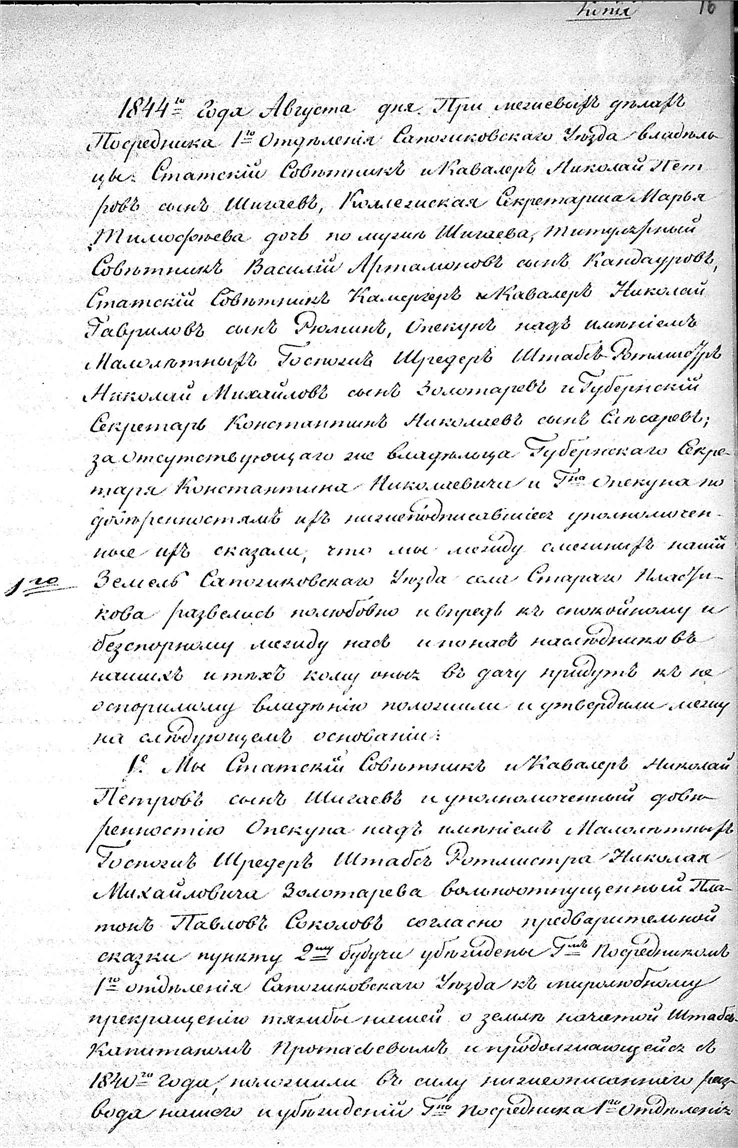 Копія 16
1844го Года Августа дня. При межевыхъ дѣлахъ
Посредника 1го Отдѣленія Сапожковскаго Уѣзда владѣль-
цы: Статскій Совѣтникъ и Кавалеръ Николай Пет-
ровъ сынъ Шигаевъ, Коллежская Секретарша Марья
Тимофѣева дочь по мужѣ Шигаева, Титулярный
Совѣтникъ Василій Артамоновъ сынъ Кандауровъ,
Статскій Совѣтникъ Камергеръ и Кавалеръ Николай
Гавриловъ сынъ Рюминъ, Опекунъ надъ имѣніемъ
Малолѣтныхъ Госпожъ Шредеръ Штабсъ-Ротмистръ
Николай Михайловъ сынъ Золотаревъ и Губернскій
Секретарь Константинъ Николаевъ сынъ Слѣсаревъ;
за отсутствующаго же владѣльца Губернскаго Секре-
таря Константина Николаевича и Гна Опекуна по
довѣренностямъ ихъ нижеподписавшіеся уполномочен-
ные ихъ сказали, что мы между смежныхъ нашихъ
1го Земель Сапожковскаго Уѣзда села Стараго Пласти-
кова развелись полюбовно и впредь къ спокойному и
безспорному между насъ и по насъ наслѣдниковъ
нашихъ и тѣхъ кому оныя въ дачу придутъ къ не
оспоримому владѣнію положили и утвердили межу
на слѣдующемъ основаніи:
1е. Мы Статскій Совѣтникъ и Кавалеръ Николай
Петровъ сынъ Шигаевъ и уполномоченный довѣ-
ренностію Опекуна надъ имѣніемъ Малолѣтныхъ
Госпожъ Шредеръ Штабсъ Ротмистра Николая
Михайловича Золотарева вольноотпущенный Пла-
тонъ Павловъ Соколовъ согласно предварительной
сказки пункту 2му будучи убѣждены Гмъ Посредникомъ
1го отдѣленія Сапожковскаго Уѣзда къ миролюбному
прекращенію тяжбы нашей о землѣ начатой Штабсъ
Капитаномъ Протасьевымъ и продолжающейся съ
1840го года, положили въ силу нижеописаннаго раз-
вода нашего и убѣжденій Гна Посредника 1го Отдѣленія